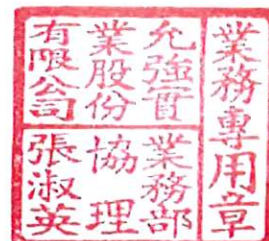 業務專用章
允強實
業股份
有限公司
業務部
協理
張淑英